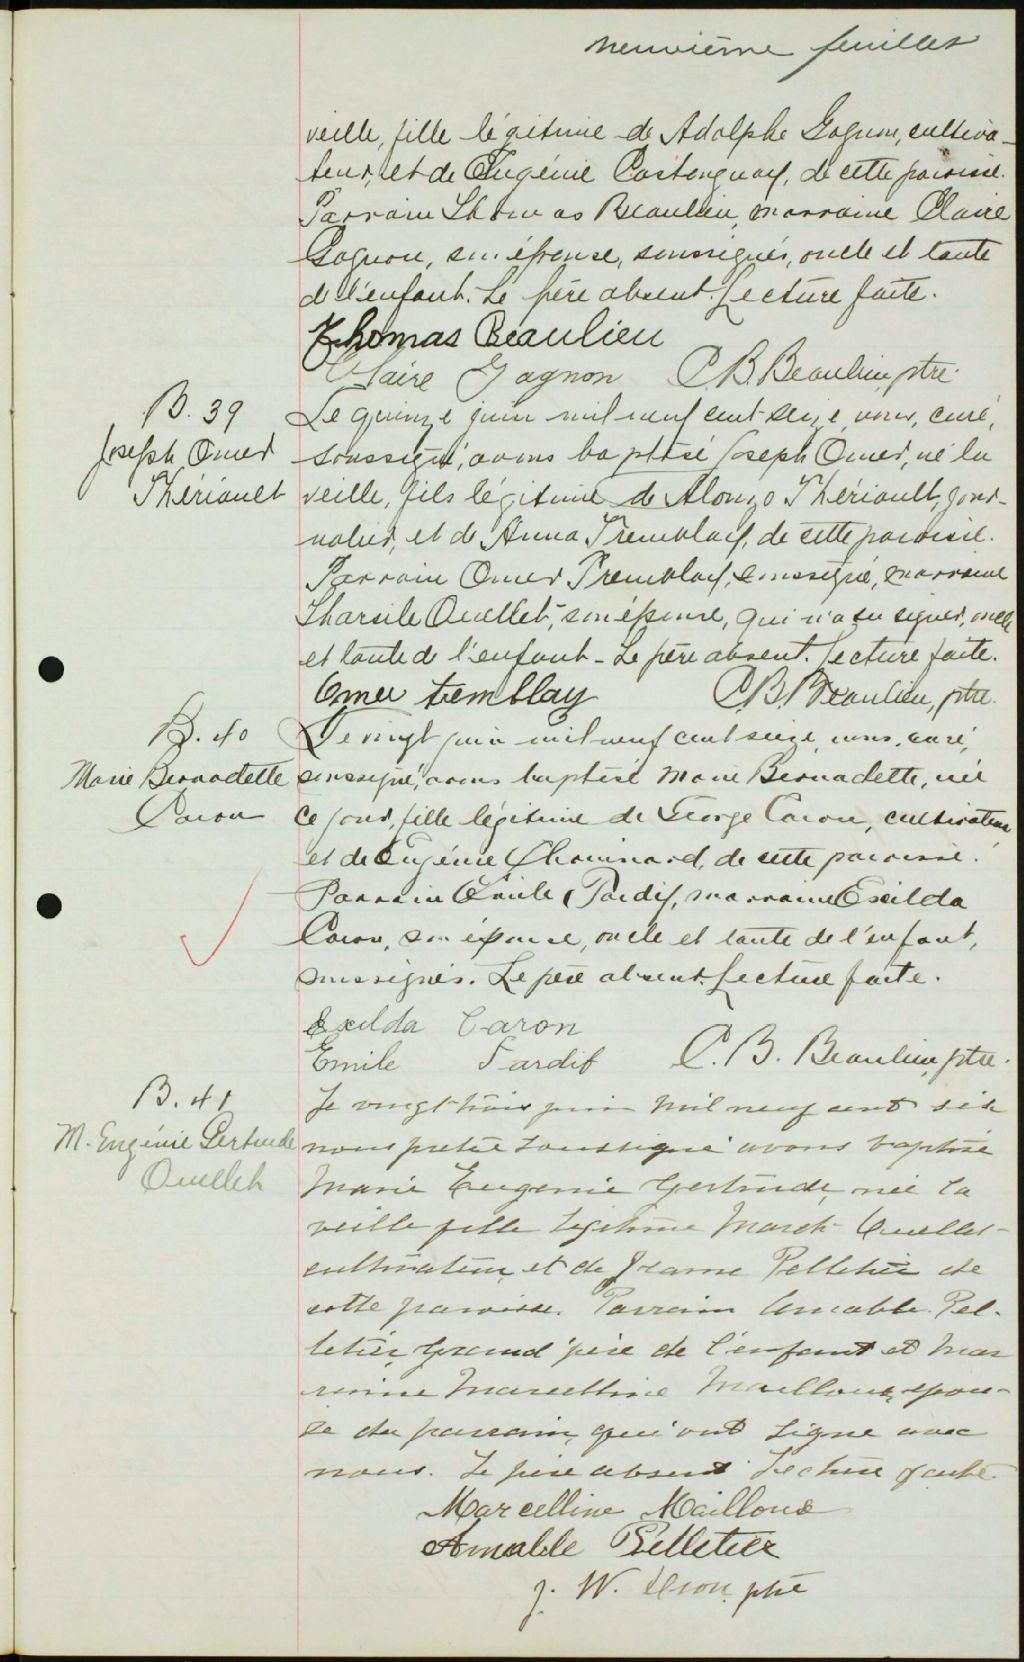 neuvième feuillet
veille, fille légitime de Adolphe Gagnon, cultiva-
teur, et de Eugénie Castonguay, de cette paroisse.
Parrain Thomas Beaulieu, marraine Claire
Gagnon, son épouse, soussignés, oncle et tante
de l'enfant. Le père absent. Lecture faite.
Thomas Beaulieu
Claire Gagnon C. B. Beaulieu, ptre.
B. 39
Joseph Omer
Thériault
Le quinze juin mil neuf cent seize, nous, curé,
soussigné, avons baptisé Joseph Omer, né la
veille, fils légitime de Alonzo Thériault, jour-
nalier, et de Anna Tremblay, de cette paroisse.
Parrain Omer Tremblay, soussigné, marraine
Tharsile Ouellet, son épouse, qui n'a su signer, oncle
et tante de l'enfant - Le père absent. Lecture faite.
Omer tremblay C. B. Beaulieu, ptre.
B. 40
Marie Bernadette
Caron
Le vingt juin mil neuf cent seize, nous, curé,
soussigné, avons baptisé Marie Bernadette, née
ce jour, fille légitime de George Caron, cultivateur
et de Eugénie Chouinard, de cette paroisse.
Parrain Emile Tardif, marraine Exilda
Caron, son épouse, oncle et tante de l'enfant,
soussignés. Le père absent. Lecture faite.
Exilda Caron
Emile Tardif C. B. Beaulieu, ptre.
B. 41
M. Eugénie Gertrude
Ouellet
Le vingt trois juin mil neuf cent
nous pretre soussigné avons baptisé
Marie Eugenie Gertrude, née la
veille fille legitime Ouellet
cultivateur, et de Pelletier de
cette paroisse. Parrain Amable Pel-
letier, grand'père de l'enfant et mar
raine Marcelline Mailloux, épou-
se du parrain, qui ont signé avec
nous. Le père absent. Lecture faite.
Marcelline Mailloux
Amable Pelletier
J. W. ptre